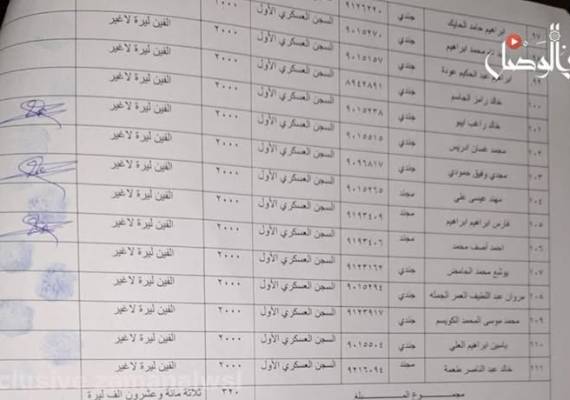 ٩٧ ابراهيم حامد الحايك جندي ٩١٢٦٢٢٠ السجن العسكري الأول ١٠٠٠ الفين ليرة لاغير
محمد ابراهيم جندي ٩٠١٥٢٧٠ السجن العسكري الأول ٢٠٠٠ الفين ليرة لاغير
٩٩ ابراهيم عبد الحكيم عودة جندي ٩٠١٥١٥٧ السجن العسكري الأول ٢٠٠٠ الفين ليرة لاغير
١٠٠ خالد رامز الجاسم جندي ٨٩٤٢٨٩١ السجن العسكري الأول ٢٠٠٠ الفين ليرة لاغير
خالد راغب ايبو جندي ٩٠١٥٢٣٨ السجن العسكري الأول ٢٠٠٠ الفين ليرة لاغير
محمد غسان ادريس جندي ٩٠١٥٥١٥ السجن العسكري الأول ٢٠٠٠ الفين ليرة لاغير
مجدي وفيق حمودي جندي ٩٠٩٦٨١٧ السجن العسكري الأول ٢٠٠٠ الفين ليرة لاغير
مهند عيسى علي مجند ٩٠١٥٢٦٥ السجن العسكري الأول ٢٠٠٠ الفين ليرة لاغير
فارس ابراهيم ابراهيم مجند ٩١٩٣٤٠٩ السجن العسكري الأول ٢٠٠٠ الفين ليرة لاغير
احمد آصف محمد مجند ٩١٩٣٤٠٦ السجن العسكري الأول ٢٠٠٠ الفين ليرة لاغير
يوشع محمد الحامض جندي ٩١٢٣١٦٢ السجن العسكري الأول ٢٠٠٠ الفين ليرة لاغير
مروان عبد اللطيف العمر الجمله جندي ٩٠١٥٢٩٤ السجن العسكري الأول ٢٠٠٠ الفين ليرة لاغير
محمد موسى المحمد الكويسم جندي ٩١٢٣٩١٧ السجن العسكري الأول ٢٠٠٠ الفين ليرة لاغير
ياسين ابراهيم العلي جندي ٩٠١٥٥٠٤ السجن العسكري الأول ٢٠٠٠ الفين ليرة لاغير
خالد عبد الناصر طعمة مجند ٩٢١٦٠٩٤ السجن العسكري الأول ٢٠٠٠ الفين ليرة لاغير
مجموع المبلغ ٣٢٠ ثلاثة مائة وعشرون الف ليرة